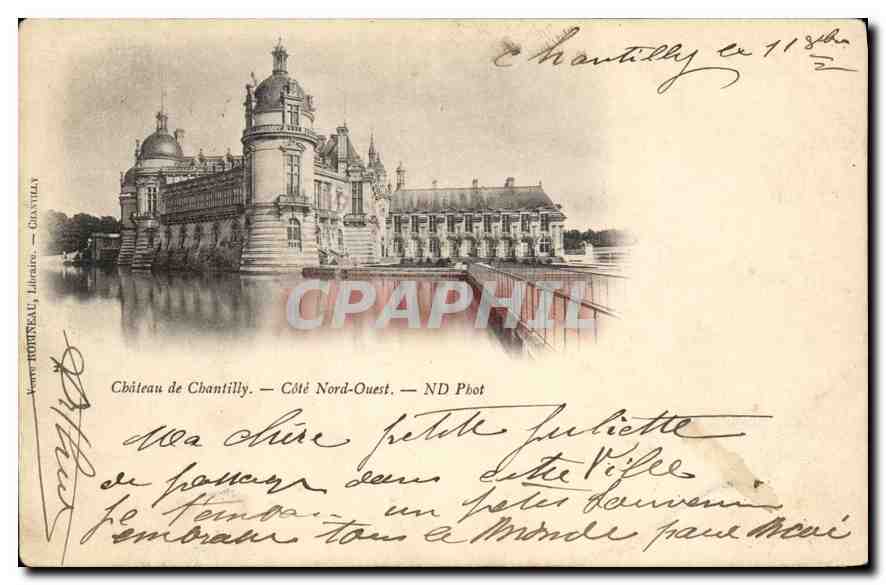 Chantilly le 11 9bre
2
CPAPHIL
Veuve ROBINEAU, Libraire. — CHANTILLY
Château de Chantilly. — Côté Nord-Ouest. — ND Phot
Ma chère petite Juliette
de passage dans cette Ville
je un petit Souvenir
embrasse tous le Monde pour